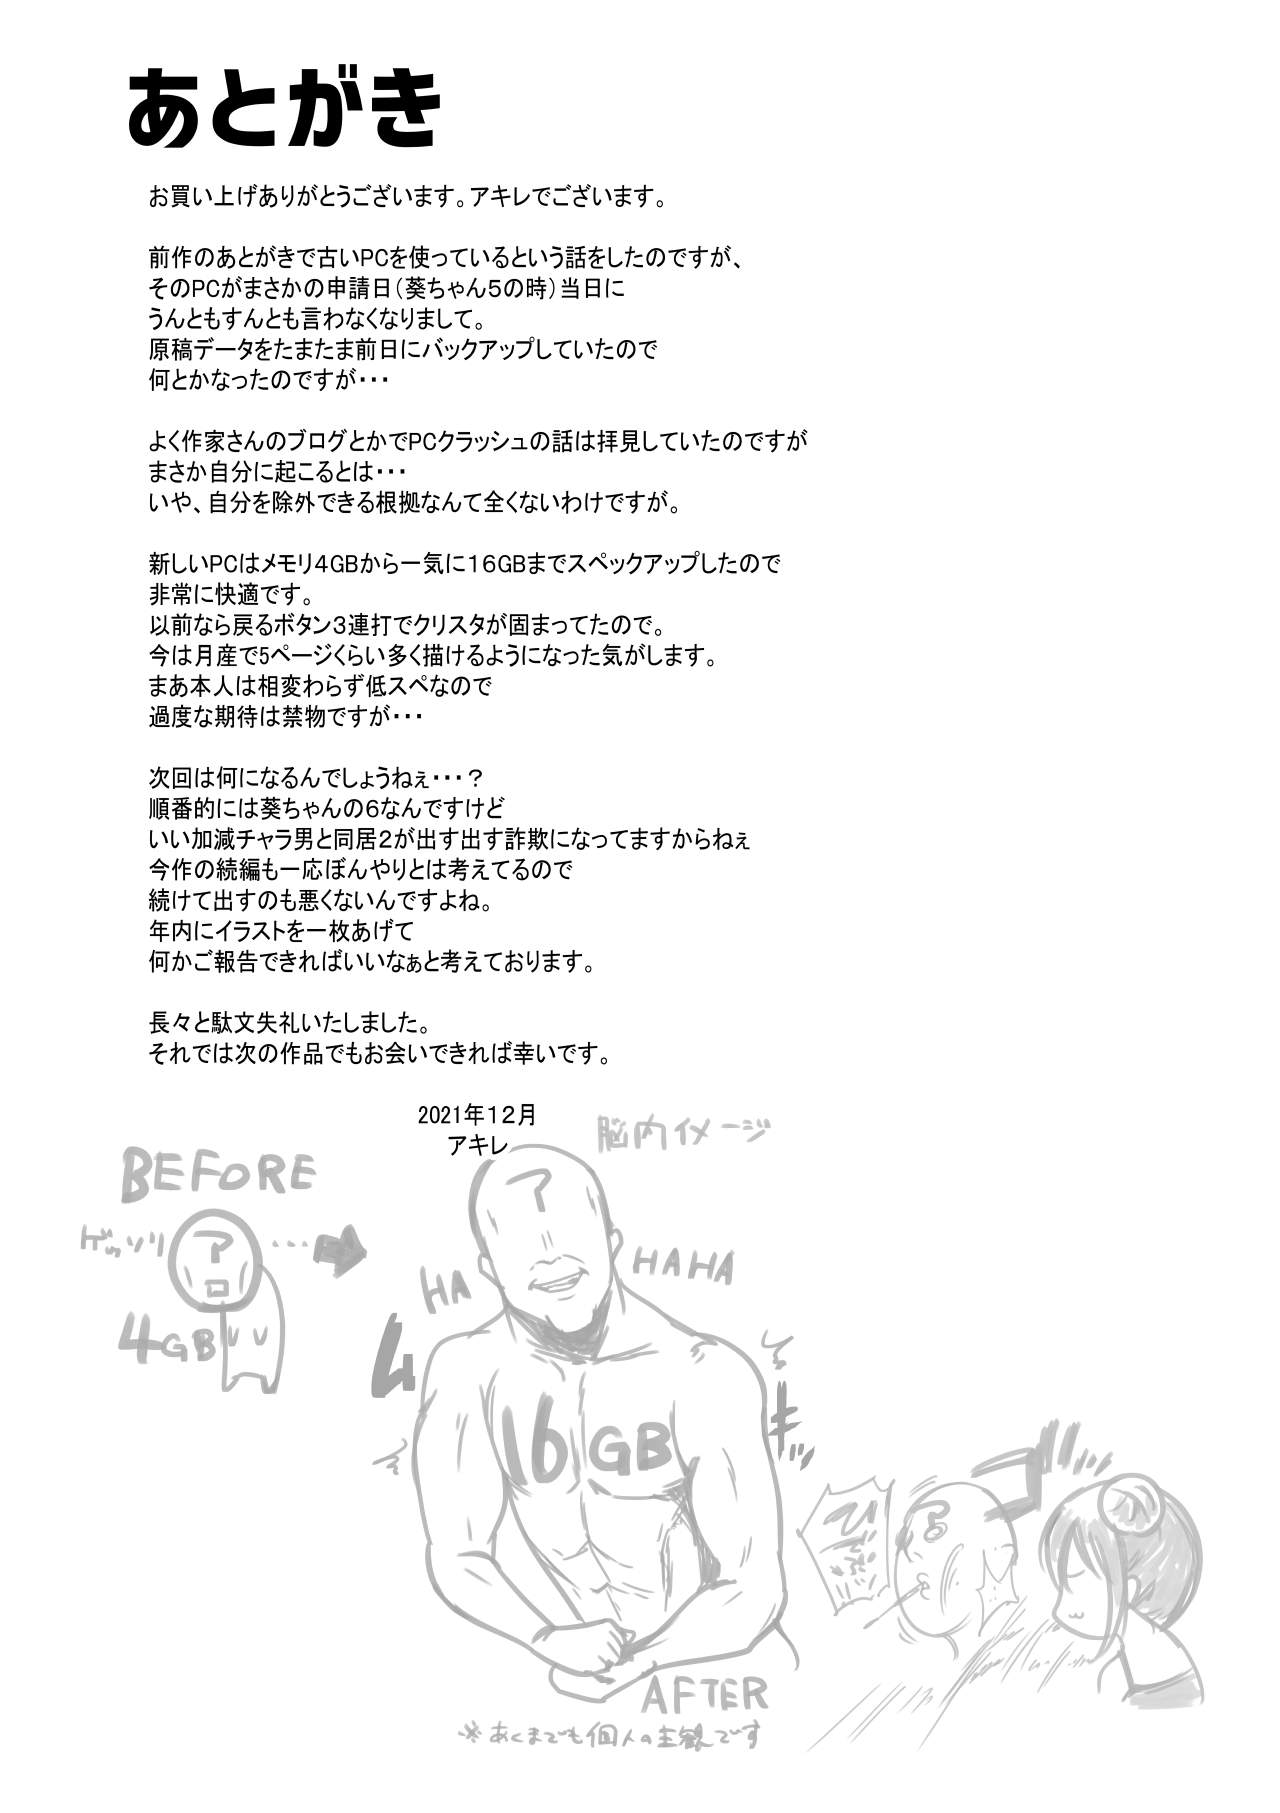 あとがき
お買い上げありがとうございます。アキレでございます。
前作のあとがきで古いPCを使っているという話をしたのですが、
そのPCがまさかの申請日(葵ちゃん5の時)当日に
うんともすんとも言わなくなりまして。
原稿データをたまたま前日にバックアップしていたので
何とかなったのですが・・・
よく作家さんのブログとかでPCクラッシュの話は拝見していたのですが
まさか自分に起こるとは・・・
いや、自分を除外できる根拠なんて全くないわけですが。
新しいPCはメモリ4GBから一気に16GBまでスペックアップしたので
非常に快適です。
以前なら戻るボタン3連打でクリスタが固まってたので。
今は月産で5ページくらい多く描けるようになった気がします。
まあ本人は相変わらず低スペなので
過度な期待は禁物ですが・・・
次回は何になるんでしょうねぇ・・・?
順番的には葵ちゃんの6なんですけど
いい加減チャラ男と同居2が出す出す詐欺になってますからねぇ
今作の続編も一応ぼんやりとは考えてるので
続けて出すのも悪くないんですよね。
年内にイラストを一枚あげて
何かご報告できればいいなぁと考えております。
長々と駄文失礼いたしました。
それでは次の作品でもお会いできれば幸いです。
2021年12月
アキレ
脳内イメージ
BEFORE
ゲッソリ
ア
・・・
4GB
ア
HA
HAHA
ム
キッ
16GB
AFTER
※あくまでも個人の主観です
コ
る
ひでぶ!!